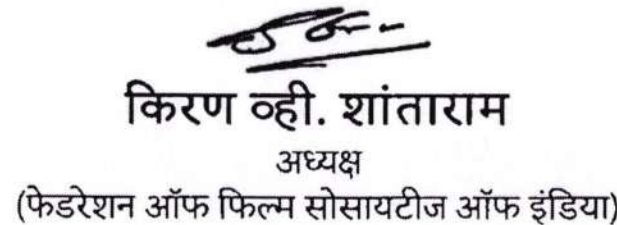 किरण व्ही. शांताराम
अध्यक्ष
(फेडरेशन ऑफ फिल्म सोसायटीज ऑफ इंडिया)